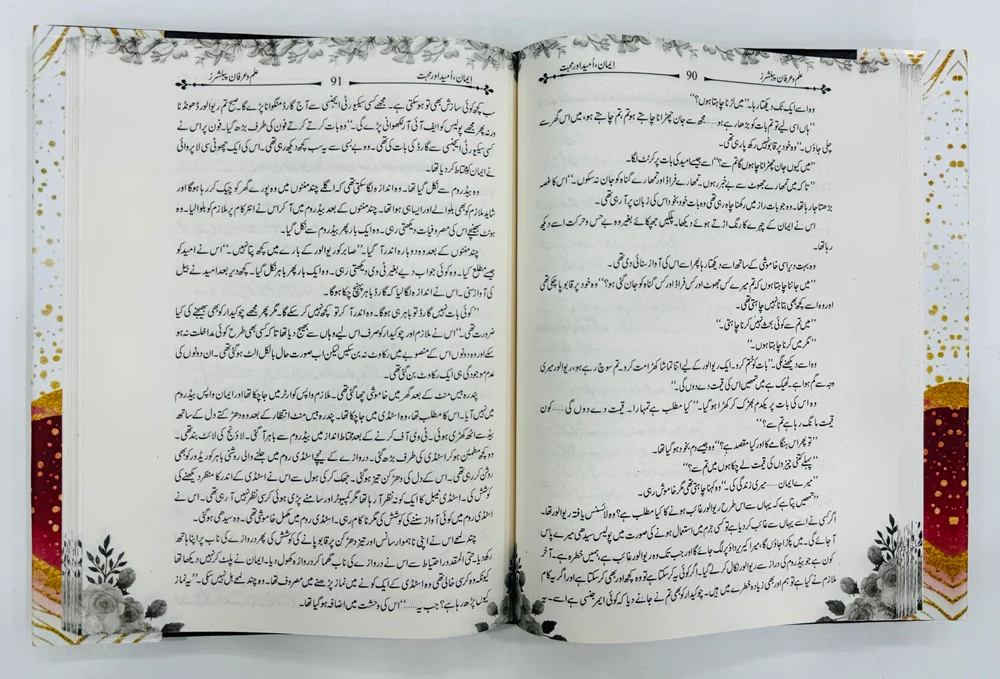 ایمان، اُمید اور محبت
90
علم و عرفان پبلشرز
وہ اسے ایک ٹک دیکھتا رہا۔ ’’میں لڑنا چاہتا ہوں؟‘‘
’’ہاں اسی لیے تو تم بات کو بڑھا رہے ہو......مجھ سے جان چھڑانا چاہتے ہو تم، تم چاہتے ہو، میں اس گھر سے
چلی جاؤں۔‘‘ وہ خود پر قابو نہیں رکھ پا رہی تھی۔
’’میں کیوں جان چھڑانا چاہوں گا تم سے؟‘‘ اسے جیسے امید کی بات پر کرنٹ لگا۔
’’تاکہ میں تمھارے جھوٹ سے بے خبر رہوں۔ تمھارے فراڈ اور تمھارے گناہ کو جان نہ سکوں۔‘‘ اس کا غصہ
بڑھتا جا رہا تھا۔ وہ جو بات راز میں رکھنا چاہ رہی تھی وہ بات خود بخود اس کی زبان پر آ رہی تھی۔
اس نے ایمان کے چہرے کا رنگ اڑتے ہوئے دیکھا۔ پلکیں جھپکائے بغیر وہ بے حس و حرکت اسے دیکھ
رہا تھا۔
وہ بہت دیر اسی خاموشی کے ساتھ اسے دیکھتا رہا پھر اسے اس کی آواز سنائی دی تھی۔
’’میں جاننا چاہتا ہوں کہ تم میرے کس جھوٹ اور کس فراڈ اور کس گناہ کو جان گئی ہو؟‘‘ وہ خود پر قابو پا چکی تھی
اور وہ اسے کچھ بھی بتانا نہیں چاہتی تھی۔
’’میں تم سے کوئی بحث نہیں کرنا چاہتی۔‘‘
’’مگر میں کرنا چاہتا ہوں۔‘‘
وہ اسے دیکھنے لگی۔ ’’بات کو ختم کرو۔ ایک ریوالور کے لیے اتنا تماشا کھڑا مت کرو۔ تم سوچ رہے ہو، ریوالور میری
وجہ سے گم ہوا ہے۔ ٹھیک ہے میں تمھیں اس کی قیمت دے دوں گی۔‘‘
وہ اس کی بات پر یکدم بھڑک کر کھڑا ہو گیا۔ ’’کیا مطلب ہے تمہارا۔ قیمت دے دوں گی......کون
قیمت مانگ رہا ہے تم سے؟‘‘
’’تو پھر اس ہنگامے کا اور کیا مقصد ہے؟‘‘ وہ جیسے دم بخود ہو گیا تھا۔
’’پہلے کتنی چیزوں کی قیمت لے چکا ہوں میں تم سے؟‘‘
’’میرے ایمان......میری زندگی کی۔‘‘ وہ کہنا چاہتی تھی مگر خاموش رہی۔
’’تمھیں پتا ہے کہ یہاں سے اس طرح ریوالور غائب ہونے کا کیا مطلب ہے؟ وہ لائسنس یافتہ ریوالور تھا۔
اگر کسی نے اسے یہاں سے غائب کر دیا ہے تو کسی جرم میں استعمال ہونے کی صورت میں پولیس سیدھی میرے پاس
آ جائے گی۔ میں پکڑا جاؤں گا، میرا کیریئر داؤ پر لگ جائے گا اور جب تک وہ ریوالور غائب ہے، ہمیں خطرہ ہے۔ آخر
کون ہے جو بیڈ روم کی دراز سے ریوالور نکال کر لے گیا۔ اگر کوئی یہ کر سکتا ہے تو وہ کچھ اور بھی کر سکتا ہے اور اگر یہ کام
ملازم نے کیا ہے تو ہم اور بھی زیادہ خطرے میں ہیں۔ چوکیدار کو بھی تم نے جانے دیا کہ کوئی ایمر جنسی ہے اسے۔ یہ
علم و عرفان پبلشرز
91
ایمان، اُمید اور محبت
سب کچھ کوئی سازش بھی تو ہو سکتی ہے۔ مجھے کسی سیکیورٹی ایجنسی سے آج گارڈ منگوانا پڑے گا۔ صبح تم ریوالور ڈھونڈنا
ورنہ پھر مجھے پولیس کو ایف آئی آر لکھوانی پڑے گی۔‘‘ وہ بات کرتے کرتے فون کی طرف بڑھ گیا۔ فون پر اس نے
کسی سیکیورٹی ایجنسی سے گارڈ کی بات کی تھی۔ وہ بے بسی سے یہ سب کچھ دیکھ رہی تھی۔ اس کی ایک چھوٹی سی لاپروائی
نے ایمان کو محتاط کر دیا تھا۔
وہ بیڈ روم سے نکل گیا تھا۔ وہ اندازہ لگا سکتی تھی کہ اگلے چند منٹوں میں وہ پورے گھر کو چیک کر رہا ہو گا اور
شاید ملازم کو بھی بلوا لے اور ایسا ہی ہوا تھا۔ چند منٹوں کے بعد بیڈ روم میں آ کر اس نے انٹر کام پر ملازم کو بلوا لیا۔ وہ
ہونٹ بھینچے اس کی مصروفیات دیکھتی رہی۔ وہ ایک بار پھر بیڈ روم سے نکل گیا۔
چند منٹوں کے بعد وہ دوبارہ اندر آ گیا۔ ’’صابر کو ریوالور کے بارے میں کچھ پتا نہیں۔‘‘ اس نے امید کو
جیسے مطلع کیا۔ وہ کوئی جواب دیے بغیر ٹی وی دیکھتی رہی۔ وہ ایک بار پھر باہر نکل گیا۔ کچھ دیر بعد امید نے بیل
کی آواز سنی۔ اس نے اندازہ لگا لیا کہ گارڈ باہر پہنچ چکا ہو گا۔
’’کوئی بات نہیں گارڈ تو باہر ہی ہو گا۔ وہ اندر آ کر تو کچھ نہیں کر سکے گا۔ مگر پھر مجھے چوکیدار کو بھی بھیجنے کی کیا
ضرورت تھی۔‘‘ اس نے ملازم اور چوکیدار کو صرف اس لیے وہاں سے بھیج دیا تھا تاکہ کسی بھی طرح کوئی مداخلت نہ ہو
سکے اور وہ دونوں اس کے منصوبے میں رکاوٹ نہ بن سکیں لیکن اب صورت حال بالکل الٹ ہو گئی تھی۔ ان دونوں کی
عدم موجودگی ہی ایک رکاوٹ بن گئی تھی۔
پندرہ بیس منٹ کے بعد گھر میں خاموشی چھا گئی تھی۔ ملازم واپس کوارٹر میں جا چکا تھا اور ایمان واپس بیڈ روم
میں نہیں آیا۔ اس کا مطلب تھا، وہ اسٹڈی میں جا چکا تھا۔ پندرہ بیس منٹ انتظار کے بعد وہ دھڑکتے دل کے ساتھ
بیڈ سے اٹھ کھڑی ہوئی۔ ٹی وی آف کرنے کے بعد محتاط انداز میں بیڈ روم سے باہر آ گئی۔ لاؤنج کی لائٹ بند تھی۔
وہ کچھ مطمئن ہو کر اسٹڈی کی طرف بڑھ گئی۔ دروازے کے نیچے اسٹڈی روم میں جلنے والی روشنی باہر کوریڈور کو بھی
روشن کر رہی تھی۔ اس کے دل کی دھڑکن تیز ہو گئی۔ جھک کر کی ہول سے اس نے اسٹڈی کے اندر کا منظر دیکھنے کی
کوشش کی۔ اسٹڈی ٹیبل کا ایک کونہ نظر آ رہا تھا مگر کمپیوٹر اور سامنے پڑی ہوئی کرسی نظر نہیں آ رہی تھی۔ اس نے
اسٹڈی روم میں کوئی آواز سننے کی کوشش کی مگر ناکام رہی۔ اسٹڈی روم میں مکمل خاموشی تھی۔ وہ سیدھی ہو گئی۔
چند لمحے اس نے اپنی ناہموار سانس اور تیز دھڑکن پر قابو پانے کی کوشش کی پھر دروازے کی ناب پر اپنا ہاتھ
رکھ دیا۔ حتی المقدور احتیاط سے اس نے دروازے کی ناب گھما کر دروازہ کھول دیا۔ ایمان نے پلٹ کر نہیں دیکھا تھا
کیونکہ وہ کرسی خالی تھی وہ اسٹڈی کے ایک کونے میں نماز پڑھنے میں مصروف تھا۔ وہ چند لمحے ہل نہیں سکی۔ ’’یہ نماز
کیوں پڑھ رہا ہے؟ جب یہ......‘‘ اس کی وحشت میں اضافہ ہو گیا تھا۔